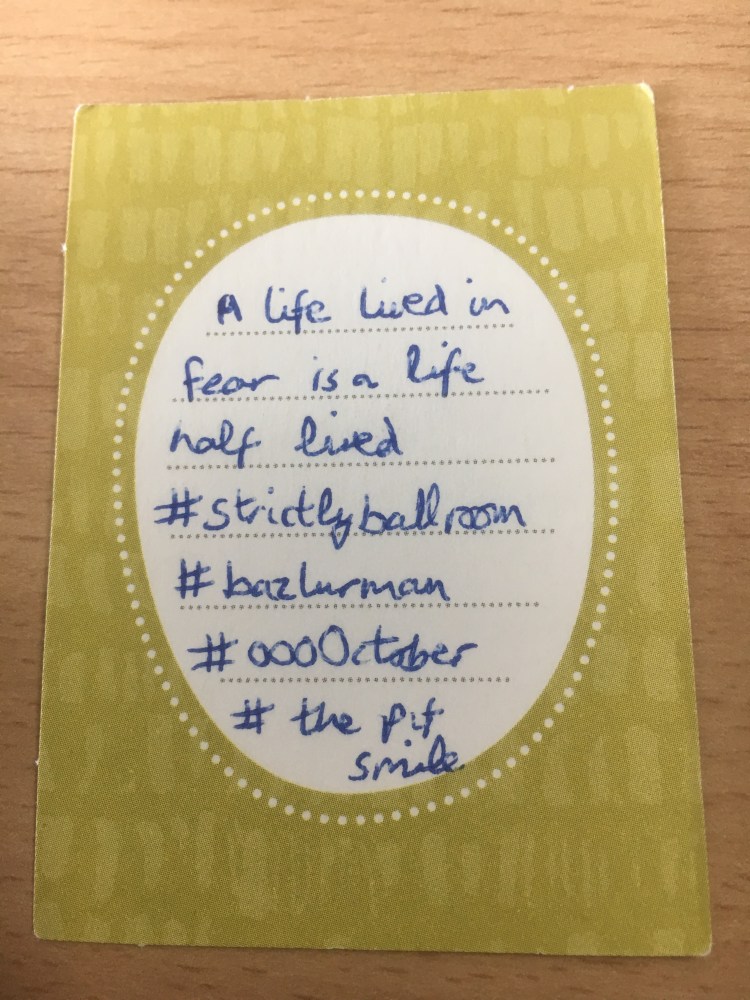 A life lived in
fear is a life
half lived
#strictlyballroom
#bazlurman
#oooOctober
# the pit
smile